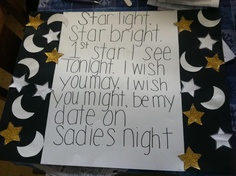 Star light.
Star bright.
1st star I see
tonight. I wish
you may. I wish
you might. be my
date on
Sadies night